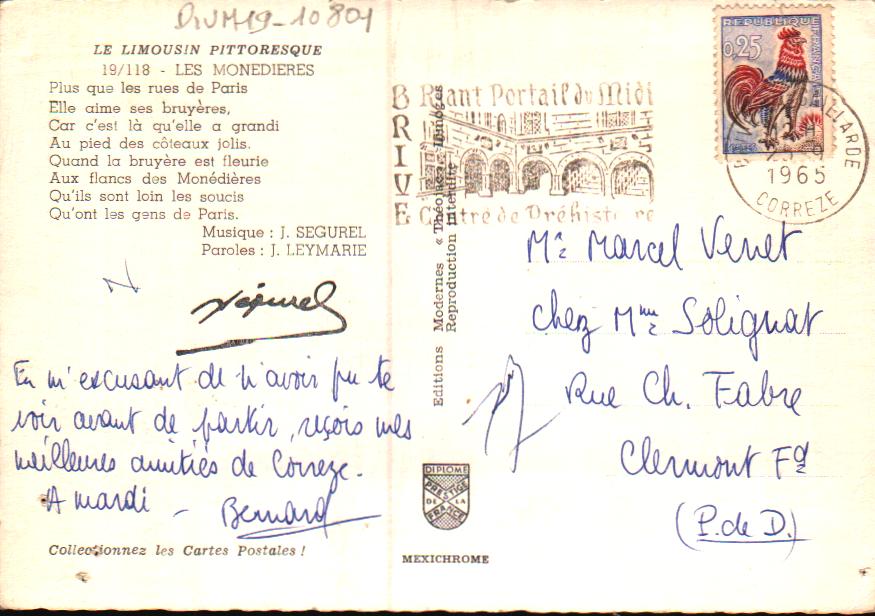 DIVM19-10804
LE LIMOUSIN PITTORESQUE
19/118 - LES MONEDIERES
Plus que les rues de Paris
Elle aime ses bruyères,
Car c'est là qu'elle a grandi
Au pied des côteaux jolis.
Quand la bruyère est fleurie
Aux flancs des Monédières
Qu'ils sont loin les soucis
Qu'ont les gens de Paris.
Musique : J. SEGUREL
Paroles : J. LEYMARIE
Ségurel
En m'excusant de n'avoir pu te
voir avant de partir, reçois mes
meilleures amitiés de Correze.
A mardi -
Bernard
Collectionnez les Cartes Postales !
Editions Modernes « Théojac » Limoges
Reproduction interdite
DIPLOME
PRESTIGE
DE LA
FRANCE
MEXICHROME
BRIVE
Riant Portail du Midi
Centre de Préhistoire
REPUBLIQUE
FRANCAISE
0,25
LARDE
1965
CORREZE
Mr Marcel Venet
chez Mme Solignat
Rue Ch. Fabre
Clermont Fd
(P. de D.)